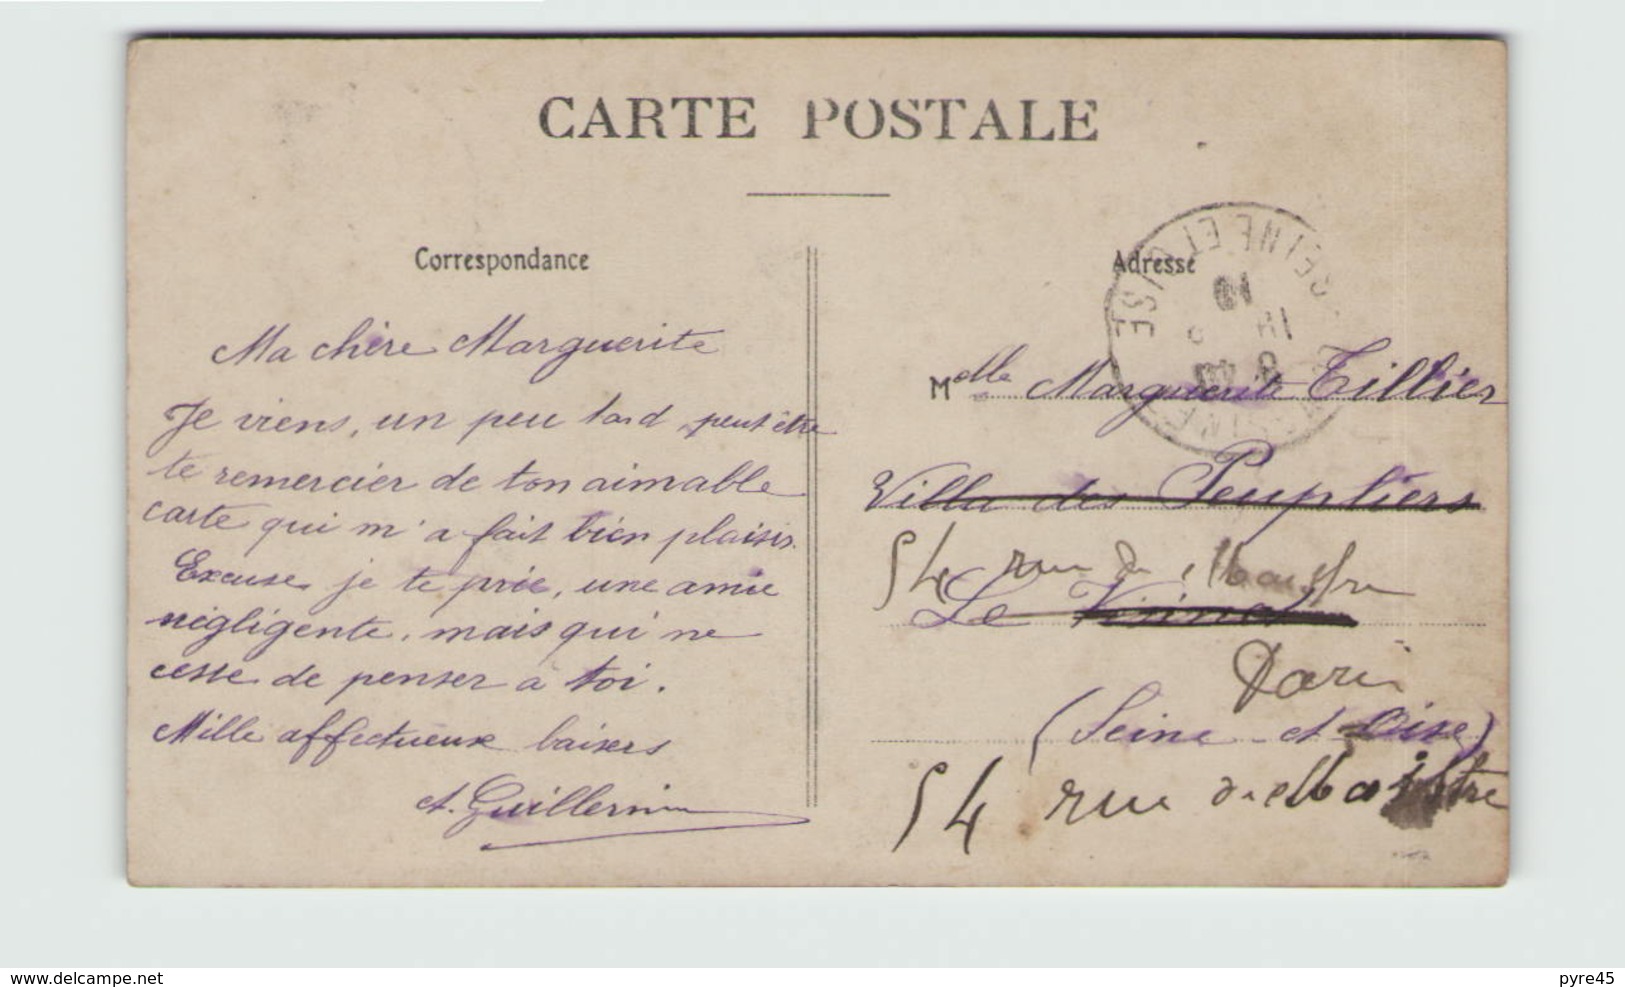 CARTE POSTALE
Correspondance
Ma chère Marguerite
Je viens, un peu tard, peut être
te remercier de ton aimable
carte qui m'a fait bien plaisir.
Excuse, je te prie, une amie
négligente, mais qui ne
cesse de penser à toi.
Mille affectueux baisers
A. Guillermin
Adresse
SEINE ET OISE
Melle Marguerite Tillier
Villa des Peupliers
54 rue de
Le
Paris
(Seine et Oise)
54 rue de
www.delcampe.net
pyre45